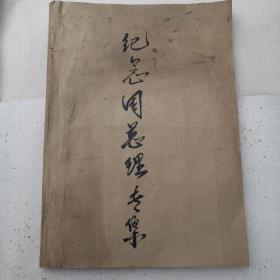 纪念周总理专集